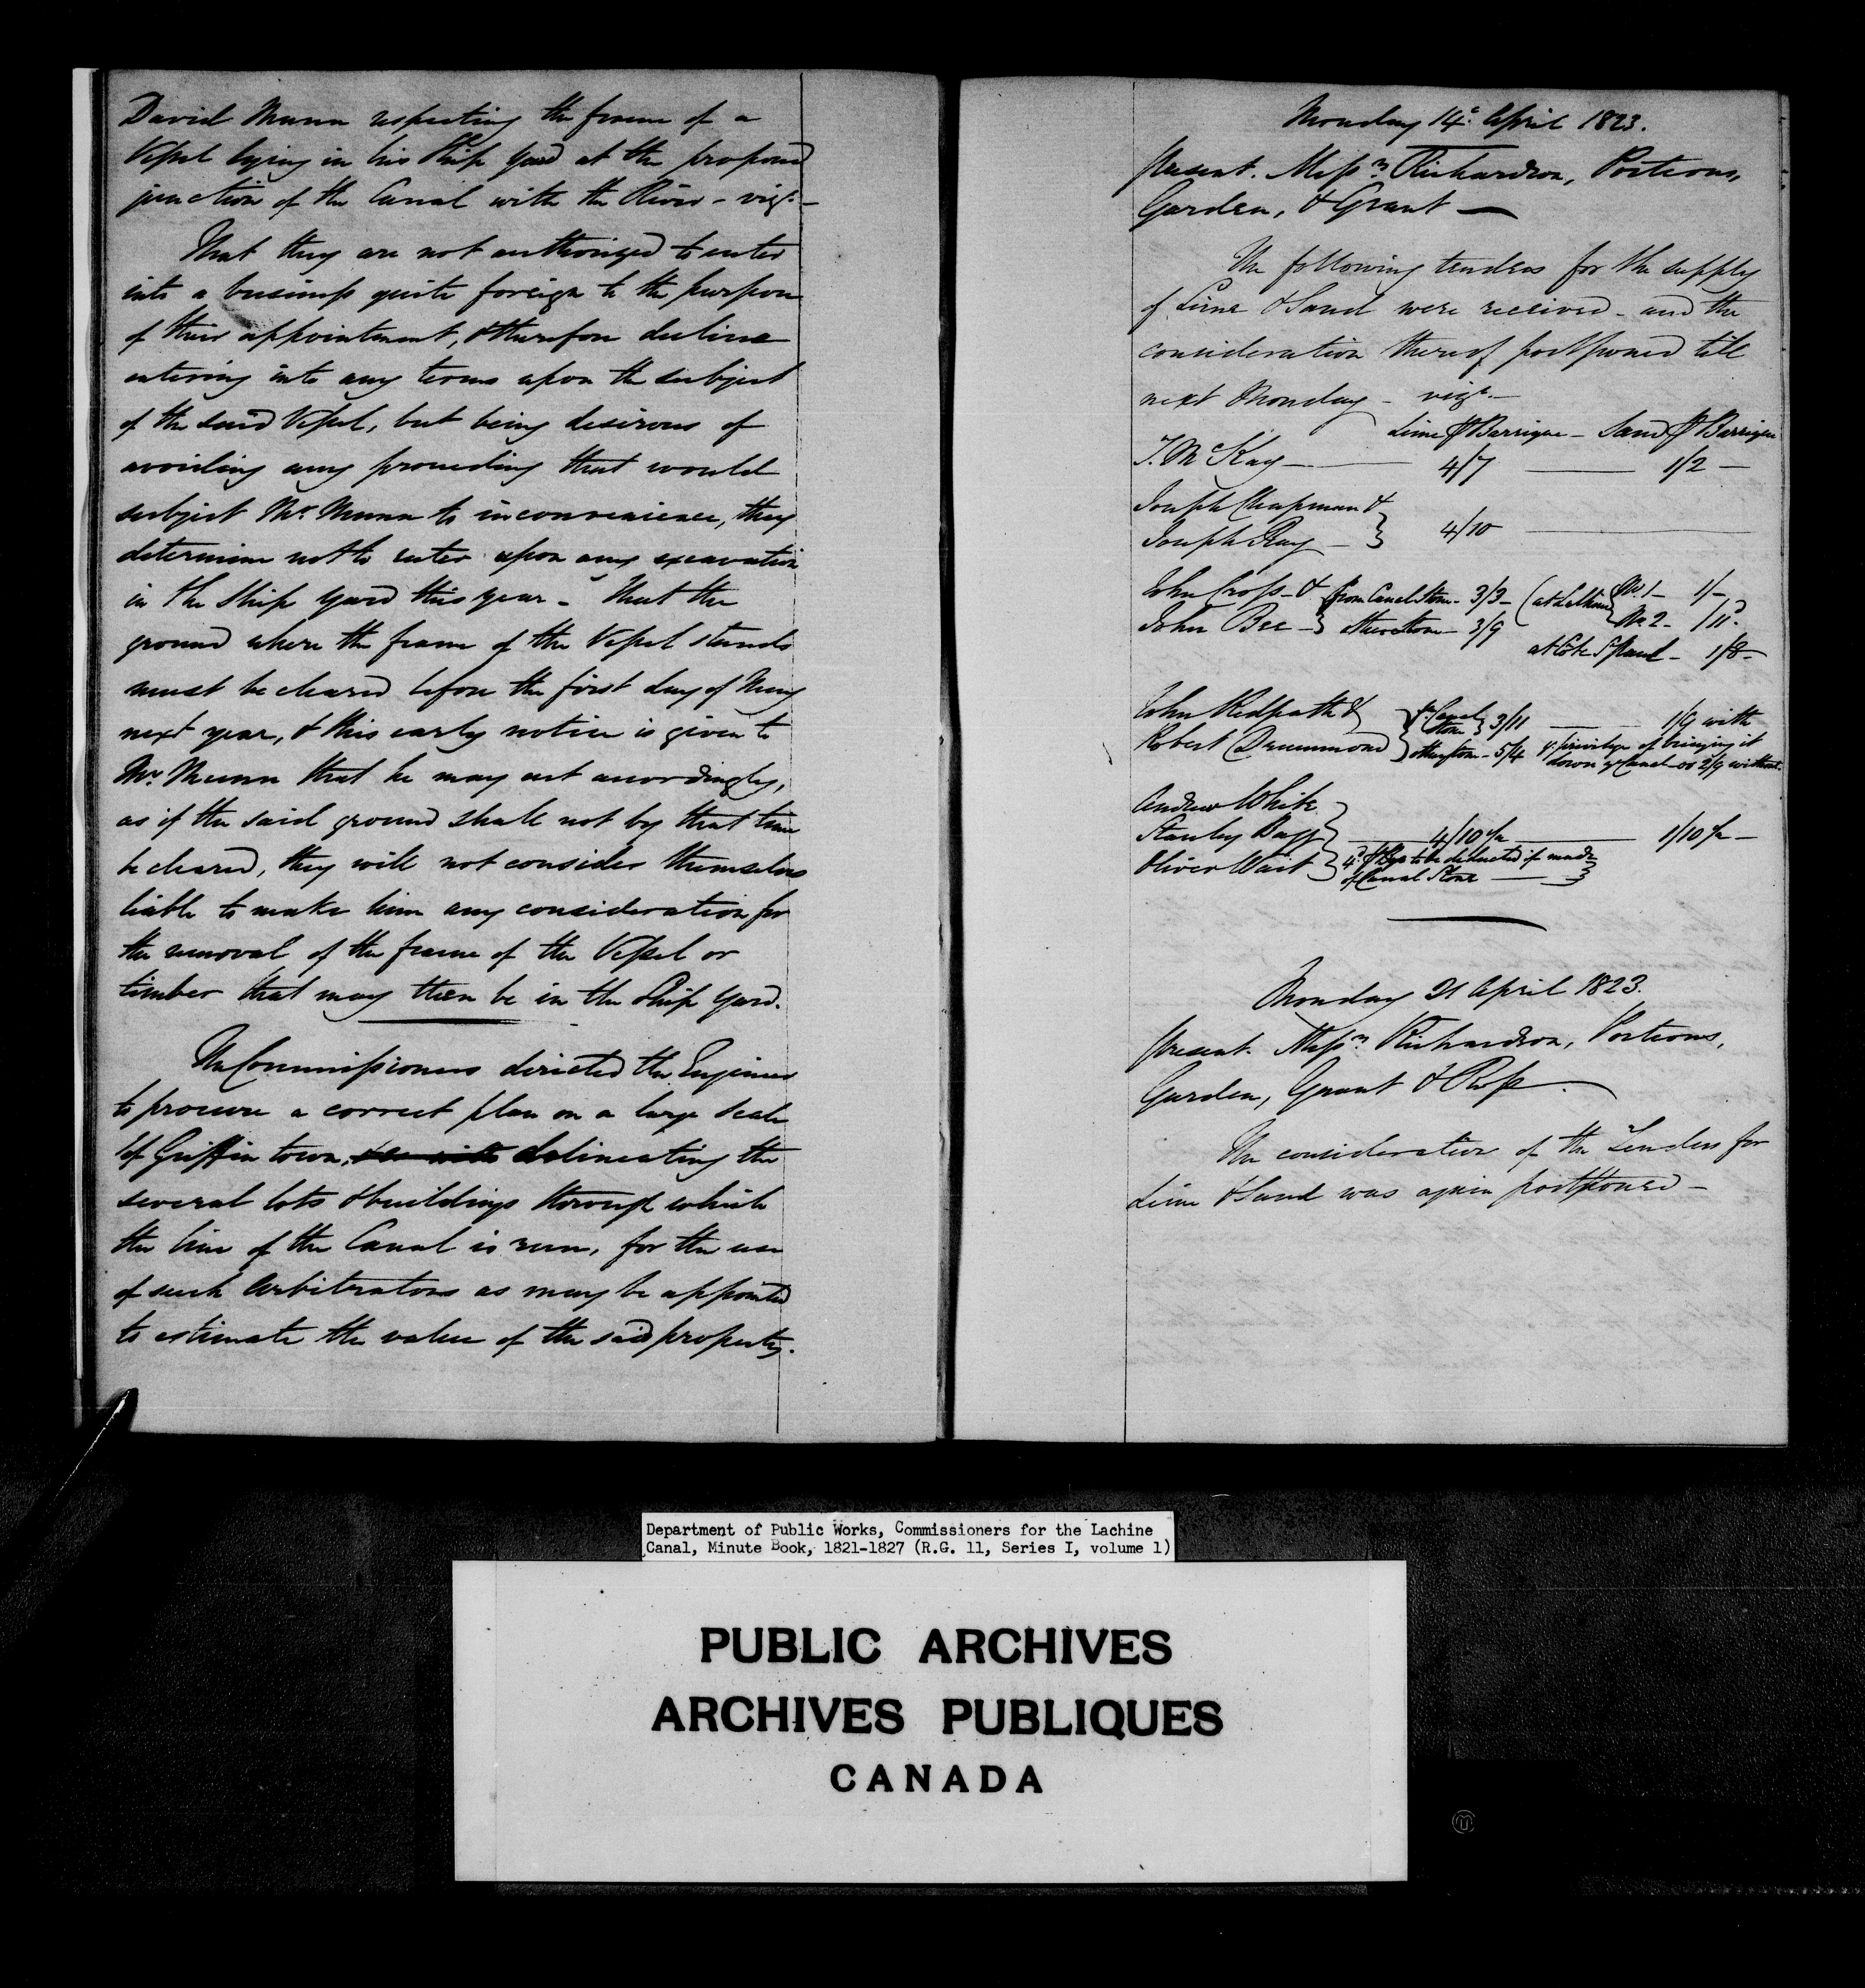 David Munn respecting the frame of a
Vessel lying in his Ship Yard at the proposed
junction of the Canal with the River - vizt. -
That they are not authorized to enter
into a business quite foreign to the purpose
of their appointment, & therefore decline
entering into any terms upon the subject
of the said Vessel, but being desirous of
avoiding any proceeding that would
subject Mr. Munn to inconvenience, they
determine not to enter upon any excavation
in the Ship Yard this year - That the
ground where the frame of the Vessel stands
must be cleared before the first day of May
next year, & this early notice is given to
Mr. Munn that he may act accordingly,
as if the said ground shall not by that time
be cleared, they will not consider themselves
liable to make him any consideration for
the removal of the frame of the Vessel or
timber that may then be in the Ship Yard.
The Commissioners directed the Engineer
to procure a correct plan on a large scale
of Griffin town, delineating the
several lots & buildings through which
the line of the Canal is run, for the use
of such Arbitrators as may be appointed
to estimate the value of the said property.
Monday 14th. April 1823.
Present. Messrs. Richardson, Porteous,
Garden, & Grant —
The following tenders for the supply
of Lime & Sand were received - and the
consideration thereof postponed till
next Monday - vizt. -
Lime ⅌ Barrique - Sand ⅌ Barrique
T. McKay — 4/7 — 1/2 —
Joseph Chapman &
Joseph Ray — } 4/10 —
John Cross - & { from Canal Stone - 3/3 - ( at Lachine { No. 1 - 1/-
John Bee - } other stone - 3/9 No 2 - /11.
at Côte St. Paul - 1/8 -
John Redpath & } fm. Canal Stone } 3/11 — 1/9 with
Robert Drummond } other stone - 5/4 ye. privilege of bringing it
down ye Canal - or 2/9 without.
Andrew White }
Stanley Bagg } — 4/10 ½ — 1/10 ½ —
Oliver Wait } 4d. ⅌ to be deducted if made
of Canal Stone — }
Monday 21 April 1823.
Present. Messrs. Richardson, Porteous,
Garden, Grant & Ross.
The consideration of the Tenders for
Lime & Sand was again postponed -
Department of Public Works, Commissioners for the Lachine
Canal, Minute Book, 1821-1827 (R.G. 11, Series I, volume 1)
PUBLIC ARCHIVES
ARCHIVES PUBLIQUES
CANADA